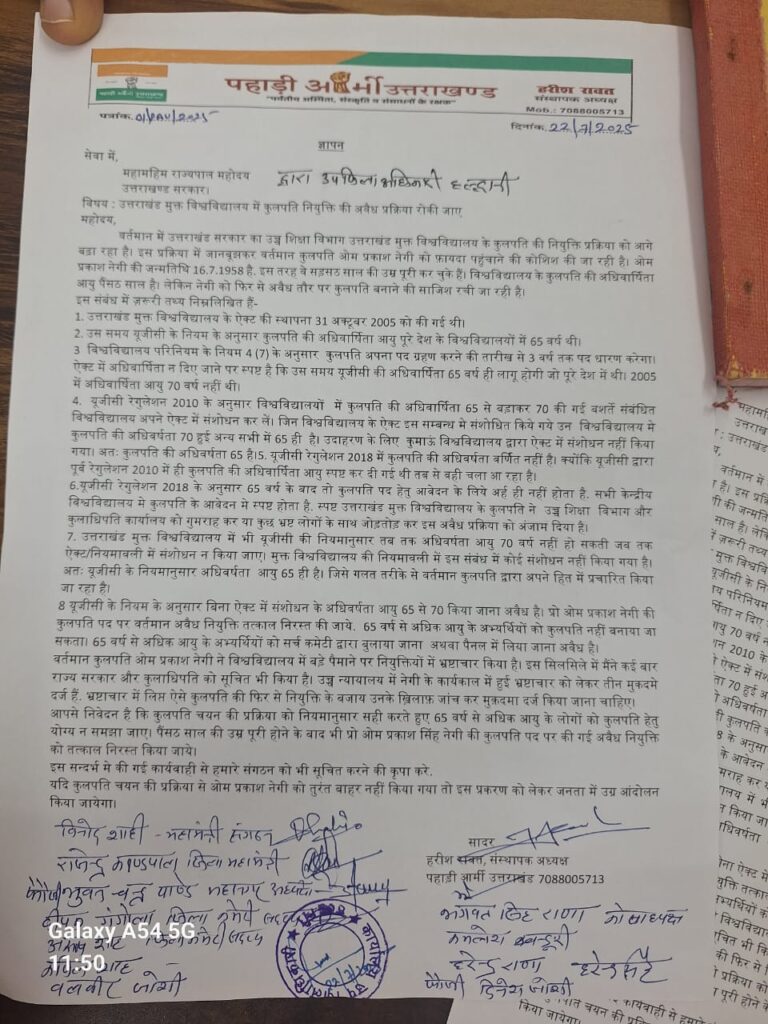 पहाड़ी आर्मी उत्तराखण्ड
"पर्वतीय अस्मिता, संस्कृति व संसाधनों के रक्षक"
हरीश रावत
संस्थापक अध्यक्ष
Mob.: 7088005713
पत्रांक.
दिनांक. 22/7/2025
ज्ञापन
सेवा में,
महामहिम राज्यपाल महोदय द्वारा उपजिलाअधिकारी हल्द्वानी
उत्तराखण्ड सरकार।
विषय : उत्तराखंड मुक्त विश्वविद्यालय में कुलपति नियुक्ति की अवैध प्रक्रिया रोकी जाए
महोदय,
वर्तमान में उत्तराखंड सरकार का उच्च शिक्षा विभाग उत्तराखंड मुक्त विश्वविद्यालय के कुलपति की नियुक्ति प्रक्रिया को आगे
बढ़ा रहा है। इस प्रक्रिया में जानबूझकर वर्तमान कुलपति ओम प्रकाश नेगी को फ़ायदा पहुंचाने की कोशिश की जा रही है। ओम
प्रकाश नेगी की जन्मतिथि 16.7.1958 है. इस तरह वे सड़सठ साल की उम्र पूरी कर चुके हैं। विश्वविद्यालय के कुलपति की अधिवार्षिता
आयु पैंसठ साल है। लेकिन नेगी को फिर से अवैध तौर पर कुलपति बनाने की साजिश रची जा रही है।
इस संबंध में ज़रूरी तथ्य निम्नलिखित हैं-
1. उत्तराखंड मुक्त विश्वविद्यालय के ऐक्ट की स्थापना 31 अक्टूबर 2005 को की गई थी।
2. उस समय यूजीसी के नियम के अनुसार कुलपति की अधिवार्षिता आयु पूरे देश के विश्वविद्यालयों में 65 वर्ष थी।
3 विश्वविद्यालय परिनियम के नियम 4 (7) के अनुसार कुलपति अपना पद ग्रहण करने की तारीख से 3 वर्ष तक पद धारण करेगा।
ऐक्ट में अधिवार्षिता न दिए जाने पर स्पष्ट है कि उस समय यूजीसी की अधिवार्षिता 65 वर्ष ही लागू होगी जो पूरे देश में थी। 2005
में अधिवार्षिता आयु 70 वर्ष नहीं थी।
4. यूजीसी रेगुलेशन 2010 के अनुसार विश्वविद्यालयों में कुलपति की अधिवार्षिता 65 से बढ़ाकर 70 की गई बशर्ते संबंधित
विश्वविद्यालय अपने ऐक्ट में संशोधन कर लें। जिन विश्वविद्यालय के ऐक्ट इस सम्बन्ध मे संशोधित किये गये उन विश्वविद्यालय मे
कुलपति की अधिवर्षता 70 हुई अन्य सभी में 65 ही है। उदाहरण के लिए कुमाऊं विश्वविद्यालय द्वारा ऐक्ट में संशोधन नहीं किया
गया। अतः कुलपति की अधिवर्षता 65 है।5. यूजीसी रेगुलेशन 2018 में कुलपति की अधिवर्षता वर्णित नहीं है। क्योंकि यूजीसी द्वारा
पूर्व रेगुलेशन 2010 में ही कुलपति की अधिवार्षिता आयु स्पष्ट कर दी गई थी तब से वही चला आ रहा है।
6.यूजीसी रेगुलेशन 2018 के अनुसार 65 वर्ष के बाद तो कुलपति पद हेतु आवेदन के लिये अर्ह ही नहीं होता है. सभी केन्द्रीय
विश्वविद्यालय मे कुलपति के आवेदन मे स्पष्ट होता है. स्पष्ट उत्तराखंड मुक्त विश्वविद्यालय के कुलपति ने उच्च शिक्षा विभाग और
कुलाधिपति कार्यालय को गुमराह कर या कुछ भ्रष्ट लोगों के साथ जोड़तोड़ कर इस अवैध प्रक्रिया को अंजाम दिया है।
7. उत्तराखंड मुक्त विश्वविद्यालय में भी यूजीसी की नियमानुसार तब तक अधिवर्षता आयु 70 वर्ष नहीं हो सकती जब तक
ऐक्ट/नियमावली में संशोधन न किया जाए। मुक्त विश्वविद्यालय की नियमावली में इस संबंध में कोई संशोधन नहीं किया गया है।
अतः यूजीसी के नियमानुसार अधिवर्षता आयु 65 ही है। जिसे गलत तरीके से वर्तमान कुलपति द्वारा अपने हित में प्रचारित किया
जा रहा है।
8 यूजीसी के नियम के अनुसार बिना ऐक्ट में संशोधन के अधिवर्षता आयु 65 से 70 किया जाना अवैध है। प्रो ओम प्रकाश नेगी की
कुलपति पद पर वर्तमान अवैध नियुक्ति तत्काल निरस्त की जाये. 65 वर्ष से अधिक आयु के अभ्यर्थियों को कुलपति नहीं बनाया जा
सकता। 65 वर्ष से अधिक आयु के अभ्यर्थियों को सर्च कमेटी द्वारा बुलाया जाना अथवा पैनल में लिया जाना अवैध है।
वर्तमान कुलपति ओम प्रकाश नेगी ने विश्वविद्यालय में बड़े पैमाने पर नियुक्तियों में भ्रष्टाचार किया है। इस सिलसिले में मैंने कई बार
राज्य सरकार और कुलाधिपति को सूचित भी किया है। उच्च न्यायालय में नेगी के कार्यकाल में हुई भ्रष्टाचार को लेकर तीन मुकदमे
दर्ज हैं. भ्रष्टाचार में लिप्त ऐसे कुलपति की फिर से नियुक्ति के बजाय उनके ख़िलाफ़ जांच कर मुकदमा दर्ज किया जाना चाहिए।
आपसे निवेदन है कि कुलपति चयन की प्रक्रिया को नियमानुसार सही करते हुए 65 वर्ष से अधिक आयु के लोगों को कुलपति हेतु
योग्य न समझा जाए। पैंसठ साल की उम्र पूरी होने के बाद भी प्रो ओम प्रकाश सिंह नेगी की कुलपति पद पर की गई अवैध नियुक्ति
को तत्काल निरस्त किया जाये।
इस सन्दर्भ मे की गई कार्यवाही से हमारे संगठन को भी सूचित करने की कृपा करे.
यदि कुलपति चयन की प्रक्रिया से ओम प्रकाश नेगी को तुरंत बाहर नहीं किया गया तो इस प्रकरण को लेकर जनता में उग्र आंदोलन
किया जायेगा।
सादर
हरीश रावत, संस्थापक अध्यक्ष
पहाड़ी आर्मी उत्तराखण्ड 7088005713
विनोद शाही - महामंत्री संगठन
राजेन्द्र काण्डपाल जिला महामंत्री
फौजी भुवन चन्द्र पाण्डे महानगर अध्यक्ष
जिला कमेटी सदस्य
बलवीर जोशी
भगवत सिंह राणा कोषाध्यक्ष
कमलेश
हरेन्द्र राणा
फौजी दिनेश जोशी
Galaxy A54 5G
11:50